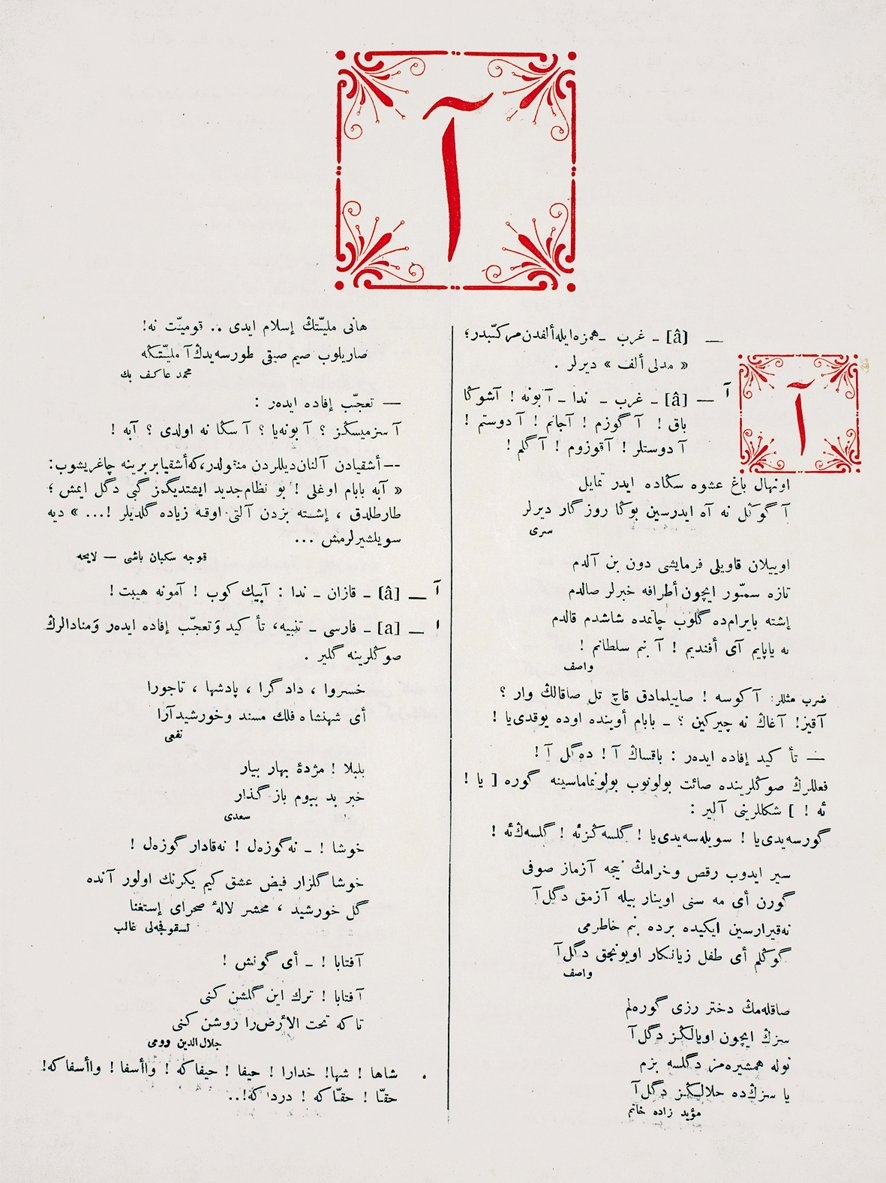 آ
آ
— [â] ـ غرب ـ همزه ایله ألفدن مركّبدر؛
« مدلی ألف » دیرلر .
آ — [â] ـ غرب ـ ندا ـ آ بونه ! آ شوكا
باق ! آ گوزم ! آ جانم ! آ دوستم !
آ دوستلر ! آ قوزوم ! آ گلم !
اونهال باغ عشوه سكاده ایدر تمایل
آ گوكل نه آه ایدرسین بوكا روزگار دیرلر
سری
اوییلان قاویلی فرمایشی دون بن آلدم
تازه سمّور ایچون أطرافه خبرلر صالدم
إشته بایرام ده گلوب چاتمده شاشدم قالدم
نه یاپایم آی أفندیم ! آ بنم سلطانم !
واصف
ضرب مثللر: آ كوسه ! صاییلمادق قاچ تل صاقالڭ وار ؟
آ قیز! آغاڭ نه چیركین ؟ ـ بابام أوینده اوده یوقدی یا !
— تأكید إفاده ایدەر : باقساڭ آ ! دەگل آ !
فعللرڭ صوڭلرینده صائت بولونوب بولونماماسینه گوره [ یا !
ئه ! ] شكللرینی آلیر :
گورسه یدی یا ! سویله سه یدی یا ! گلسه ڭز ئه ! گلسه ڭ ئه !
سیر ایدوب رقص و خرامڭ نیجه آزماز صوفی
گورن أی مه سنی اوینار بیله آزمق دگل آ
نه قیرارسین ایكیده برده بنم خاطرمی
گوڭلم أی طفل زیانكار اویونجق دگل آ
واصف
صاقله مڭ دختر رزی گوره لم
سزڭ ایچون اویالڭز دگل آ
نوله همشیره مز دگلسه بزم
یا سزڭ ده حلالڭز دگل آ
مؤید زاده خاتم
هانی ملیتڭ إسلام ایدی .. قومیّت نه!
صاریلوب صیم صیقی طورسه یدڭ آ ملیتڭه
محمد عاكف بك
— تعجّب إفاده ایدەر :
آ سزمیسڭز ؟ آ بونه یا ؟ آ سكا نه اولدی ؟ آ به !
-- أشقیادن آلنان دیللردن منقولدر، كه أشقیا بربرینه چاغریشوب:
« آ به بابام اوغلی ! بو نظام جدید ایشتدیگمز گبی دگل ایمش ؛
طارطلدق ، إشته بزدن آلتی اوقه زیاده گلدیلر !... » دیه
سویلشیرلرمش ...
قوجه سكبان باشی — لایحه
آ — [â] ـ قازان ـ ندا : آ بیك كوب ! آ مونه هیبت !
ا — [a] ـ فارسی ـ تنبیه، تأكید وَ تعجّب إفاده ایدەر وَ منادالرڭ
صوڭلرینه گلیر .
خسروا ، دادگرا ، پادشها ، تاجورا
أی شهنشاه فلك مسند و خورشید آرا
نفعی
بلبلا ! مژدهٔ بهار بیار
خبر بد ببوم باز گذار
سعدی
خوشا ! ـ نه گوزەل ! نه قادار گوزەل !
خوشا گلزار فیض عشق كیم یكرنك اولور آنده
گل خورشید ، محشر لالهٔ صحرای إستغنا
لسقوفچه لی غالب
آفتابا ! ـ أی گونش !
آفتابا ! ترك این گلشن كنی
تا كه تحت الأرض را روشن كنی
جلال الدین رومی
شاها ! شها! خدارا ! حیفا ! حیفا كه ! واأسفا ! واأسفا كه!
حقّا ! حقّا كه ! دردا كه!..